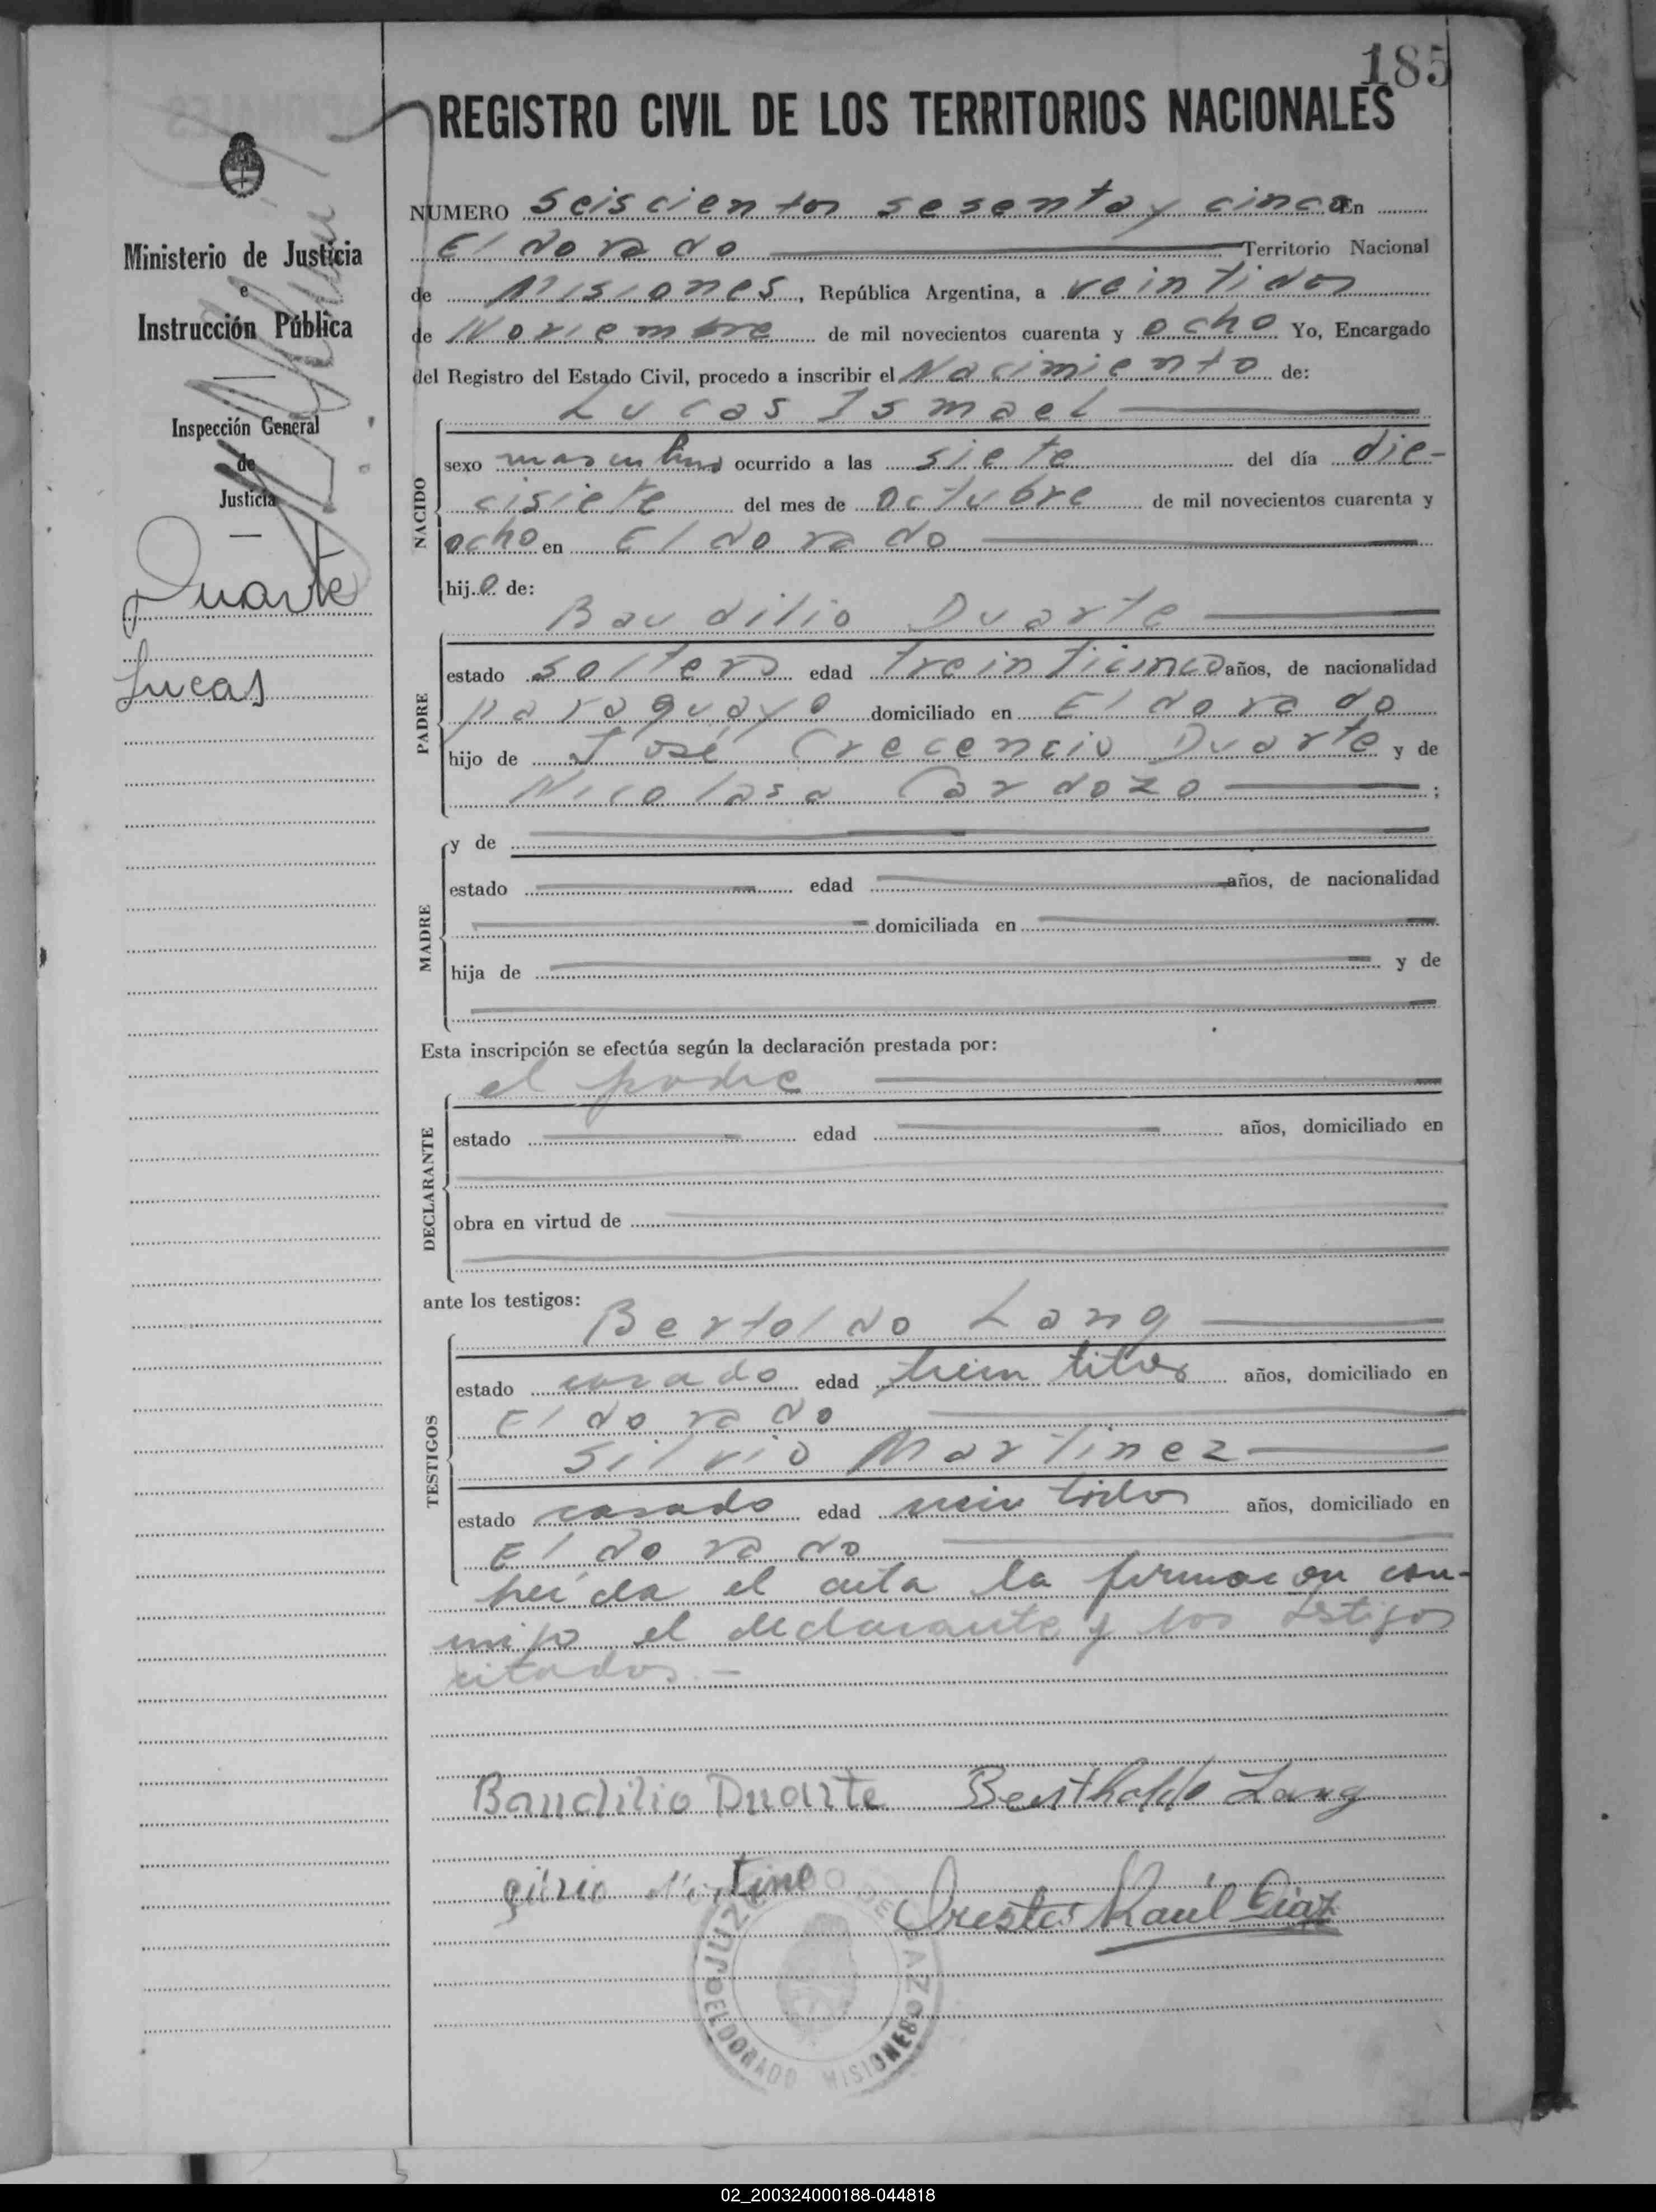 185
REGISTRO CIVIL DE LOS TERRITORIOS NACIONALES
Ministerio de Justicia
e
Instrucción Pública
Inspección General
de
Justicia
Duarte
Lucas
NUMERO Seiscientos sesenta y cinco En
Eldorado Territorio Nacional
de Misiones, República Argentina, a veintidos
de Noviembre de mil novecientos cuarenta y ocho Yo, Encargado
del Registro del Estado Civil, procedo a inscribir el Nacimiento de:
Lucas Ismael
NACIDO
sexo masculino ocurrido a las siete del día die-
cisiete del mes de octubre de mil novecientos cuarenta y
ocho en Eldorado
hijo de:
Baudilio Duarte
PADRE
estado soltero edad treinticinco años, de nacionalidad
paraguayo domiciliado en Eldorado
hijo de José Crecencio Duarte y de
Nicolasa Cardozo ;
MADRE
y de
estado edad años, de nacionalidad
domiciliada en
hija de y de
Esta inscripción se efectúa según la declaración prestada por:
el padre
DECLARANTE
estado edad años, domiciliado en
obra en virtud de
ante los testigos:
Bertoldo Lang
TESTIGOS
estado casado edad treintitres años, domiciliado en
Eldorado
Silvio Martinez
estado casado edad veintidos años, domiciliado en
Eldorado
leída el acta la firmaron con-
migo el declarante y los testigos
citados.-
Baudilio Duarte Bertholdo Lang
Silvio Martine Orestes Raúl Diaz
JUZGADO DE PAZ
ELDORADO MISIONES
02_200324000188-044818